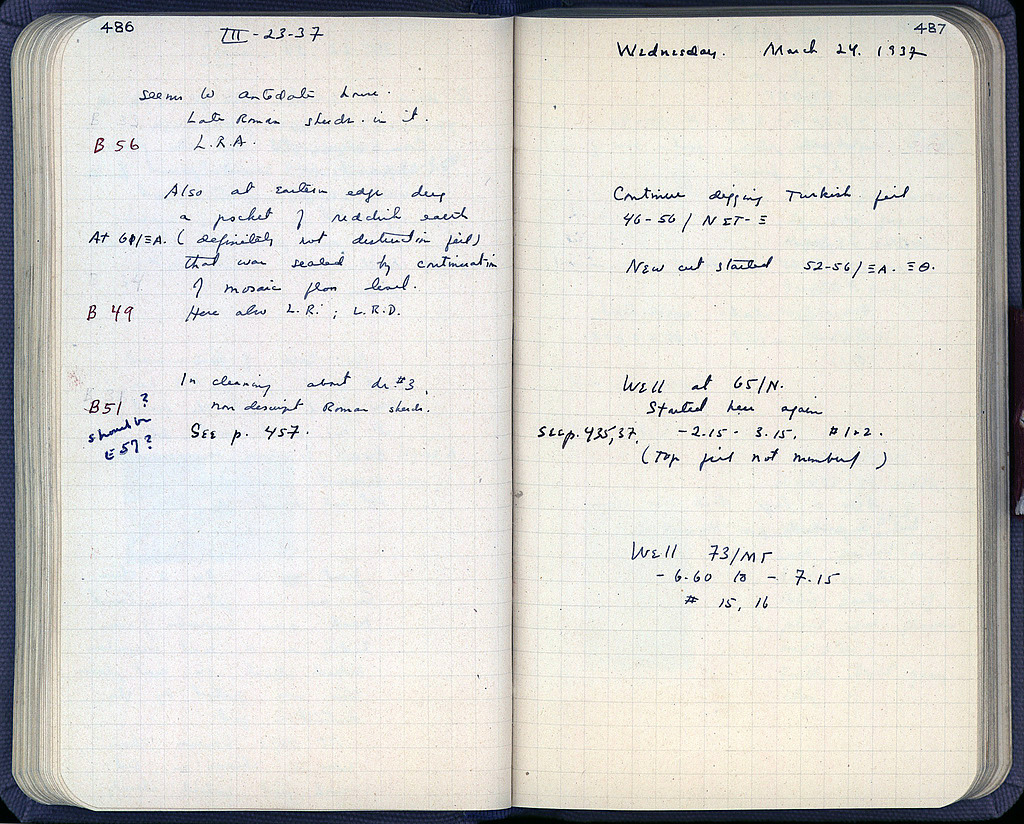 486
III-23-37
seems to antedate house.
Late Roman sherds in it.
B 56 L.R.A.
Also at eastern edge dug
a pocket of reddish earth
At 61/ΞA. (definitely not destruction fill)
that was sealed by continuation
of mosaic floor level.
B 49 Here also L.R.; L.R.D.
In cleaning about dr. #3,
B51 ? non descript Roman sherds.
should be
E 57?
SEE p. 457.
487
Wednesday. March 24. 1937
Continue digging Turkish fill
46-56 / NΣT-Ξ
New cut started 52-56/ΞA. ΞΘ.
Well at 65/N.
Started here again
See p. 435, 37. -2.15 - 3.15. #1+2.
(Top fill not numbered)
Well 73/MΓ
- 6.60 to - 7.15
# 15, 16